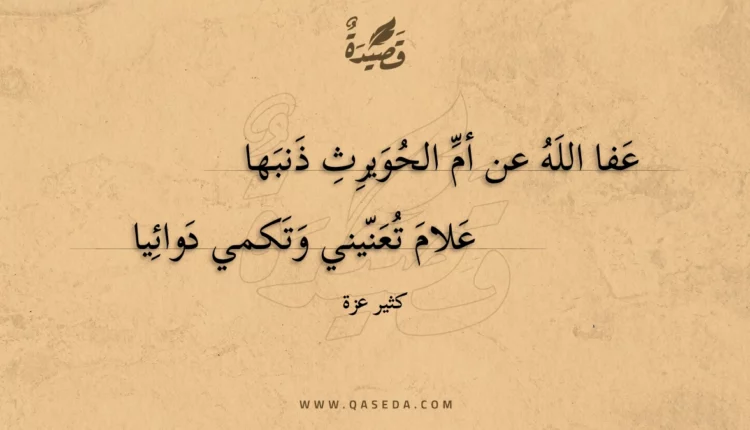 قَصِيْدَةٌ
عَفا اللَهُ عن أمِّ الحُوَيرِثِ ذَنبَها
عَلامَ تُعَنّيني وَتَكمي دَوائِيا
كثير عزة
WWW.QASEDA.COM